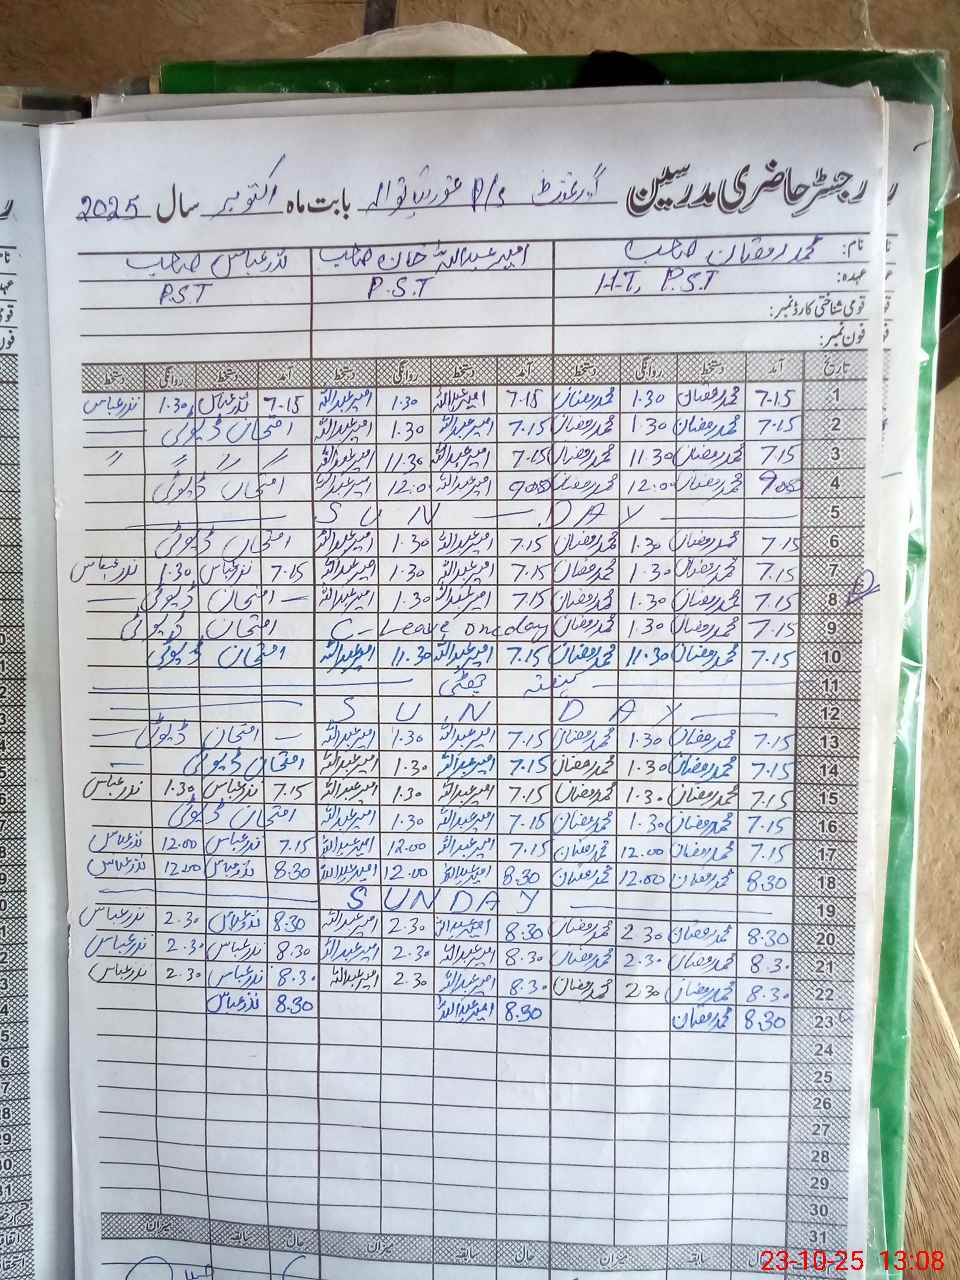 رجسٹر حاضری مدرسین گورنمنٹ P/S بابت ماہ اکتوبر سال 2025
نام: محمد رمضان صاحب امیر عبداللہ خان صاحب نذر عباس صاحب
عہدہ: H-T, P.S.T P.S.T P.S.T
قومی شناختی کارڈ نمبر:
فون نمبر:
تاریخ آمد دستخط روانگی دستخط آمد دستخط روانگی دستخط آمد دستخط روانگی دستخط
1 7.15 محمد رمضان 1.30 محمد رمضان 7.15 امیر عبداللہ 1.30 امیر عبداللہ 7.15 نذر عباس 1.30 نذر عباس
2 7.15 محمد رمضان 1.30 محمد رمضان 7.15 امیر عبداللہ 1.30 امیر عبداللہ امتحان ڈیوٹی
3 7.15 محمد رمضان 11.30 محمد رمضان 7.15 امیر عبداللہ 11.30 امیر عبداللہ " " " "
4 محمد رمضان 12.0 محمد رمضان امیر عبداللہ 12.0 امیر عبداللہ امتحان ڈیوٹی
5 SUN — DAY
6 7.15 محمد رمضان 1.30 محمد رمضان 7.15 امیر عبداللہ 1.30 امیر عبداللہ امتحان ڈیوٹی
7 7.15 محمد رمضان 1.30 محمد رمضان 7.15 امیر عبداللہ 1.30 امیر عبداللہ 7.15 نذر عباس 1.30 نذر عباس
8 7.15 محمد رمضان 1.30 محمد رمضان 7.15 امیر عبداللہ 1.30 امیر عبداللہ — امتحان ڈیوٹی —
9 7.15 محمد رمضان 1.30 محمد رمضان C-Leave one day امتحان ڈیوٹی
10 7.15 محمد رمضان 11.30 محمد رمضان 7.15 امیر عبداللہ 11.30 امیر عبداللہ امتحان ڈیوٹی
11 ہفتہ چھٹی
12 SUN DAY
13 7.15 محمد رمضان 1.30 محمد رمضان 7.15 امیر عبداللہ 1.30 امیر عبداللہ — امتحان ڈیوٹی —
14 7.15 محمد رمضان 1.30 محمد رمضان 7.15 امیر عبداللہ 1.30 امیر عبداللہ امتحان ڈیوٹی —
15 7.15 محمد رمضان 1.30 محمد رمضان 7.15 امیر عبداللہ 1.30 امیر عبداللہ 7.15 نذر عباس 1.30 نذر عباس
16 7.15 محمد رمضان 1.30 محمد رمضان 7.15 امیر عبداللہ 1.30 امیر عبداللہ امتحان ڈیوٹی
17 7.15 محمد رمضان 12.00 محمد رمضان 7.15 امیر عبداللہ 12.00 امیر عبداللہ 7.15 نذر عباس 12.00 نذر عباس
18 8.30 محمد رمضان 12.00 محمد رمضان 8.30 امیر عبداللہ 12.00 امیر عبداللہ 8.30 نذر عباس 12.00 نذر عباس
19 SUNDAY
20 8.30 محمد رمضان 2.30 محمد رمضان 8.30 امیر عبداللہ 2.30 امیر عبداللہ 8.30 نذر عباس 2.30 نذر عباس
21 8.30 محمد رمضان 2.30 محمد رمضان 8.30 امیر عبداللہ 2.30 امیر عبداللہ 8.30 نذر عباس 2.30 نذر عباس
22 8.30 محمد رمضان 2.30 محمد رمضان 8.30 امیر عبداللہ 2.30 امیر عبداللہ 8.30 نذر عباس 2.30 نذر عباس
23 8.30 محمد رمضان 8.30 امیر عبداللہ 8.30 نذر عباس
24
25
26
27
28
29
30
31
حال سابقہ میزان حال سابقہ میزان حال سابقہ میزان
23-10-25 13:08